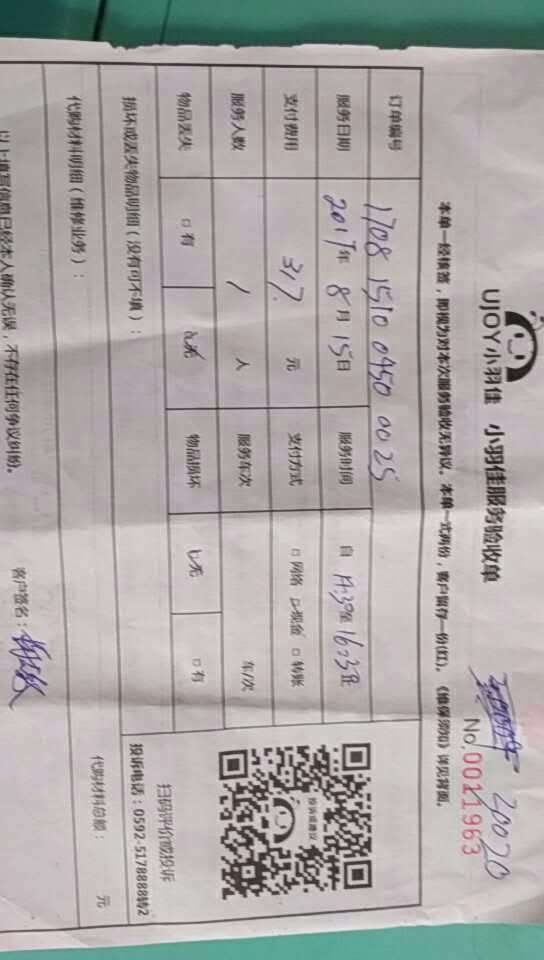 UJOY小羽佳 小羽佳服务验收单
20020
No.0011963
本单一经核签，即视为对本次服务验收无异议。本单一式两份，客户留存一份(红)。《维保须知》详见背面。
订单编号 1708 1510 0450 0025
服务日期 2017年 8月 15日 服务时间 自 14:39至 16:03止
支付费用 317. 元 支付方式 □网络 □现金 □转账
服务人数 1 人 服务车次 车/次
物品丢失 □有 无 物品损坏 无 □有
损坏或丢失物品明细（没有可不填）：
扫码评价或投诉
投诉电话：0592-5178888转2
代购材料明细（维修业务）： 代购材料总额： 元
以上填写信息已经本人确认无误，不存在任何争议纠纷。 客户签名：
投诉或建议